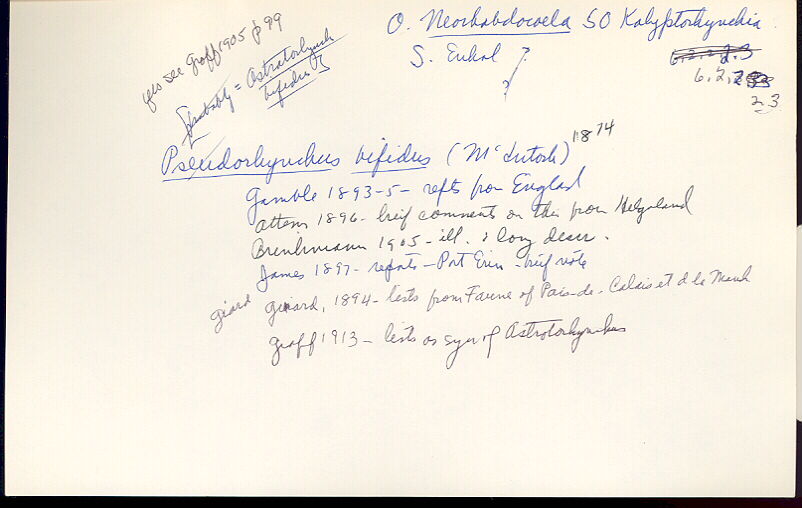 yes see Graff 1905 p 99
[probably = Astrotorhynch
bifidus]
O. Neorhabdocoela SO Kalyptorhynchia
S. Eukal ?
?
6.2.2.3
6.2.2
2.3
Pseudorhynchus bifidus (McIntosh) 1874
Gamble 1893-5 - repts from England
Attems 1896 - breif comments on this from Helgoland
Brenkmann 1905 - ill. & long descr.
James 1897 - reports - Port Erin - breif note
giard Girard, 1894 - lists from Faune of Pais-de-Calais et d la Manch
Graff 1913 - lists as syn of Astrotorhynchus